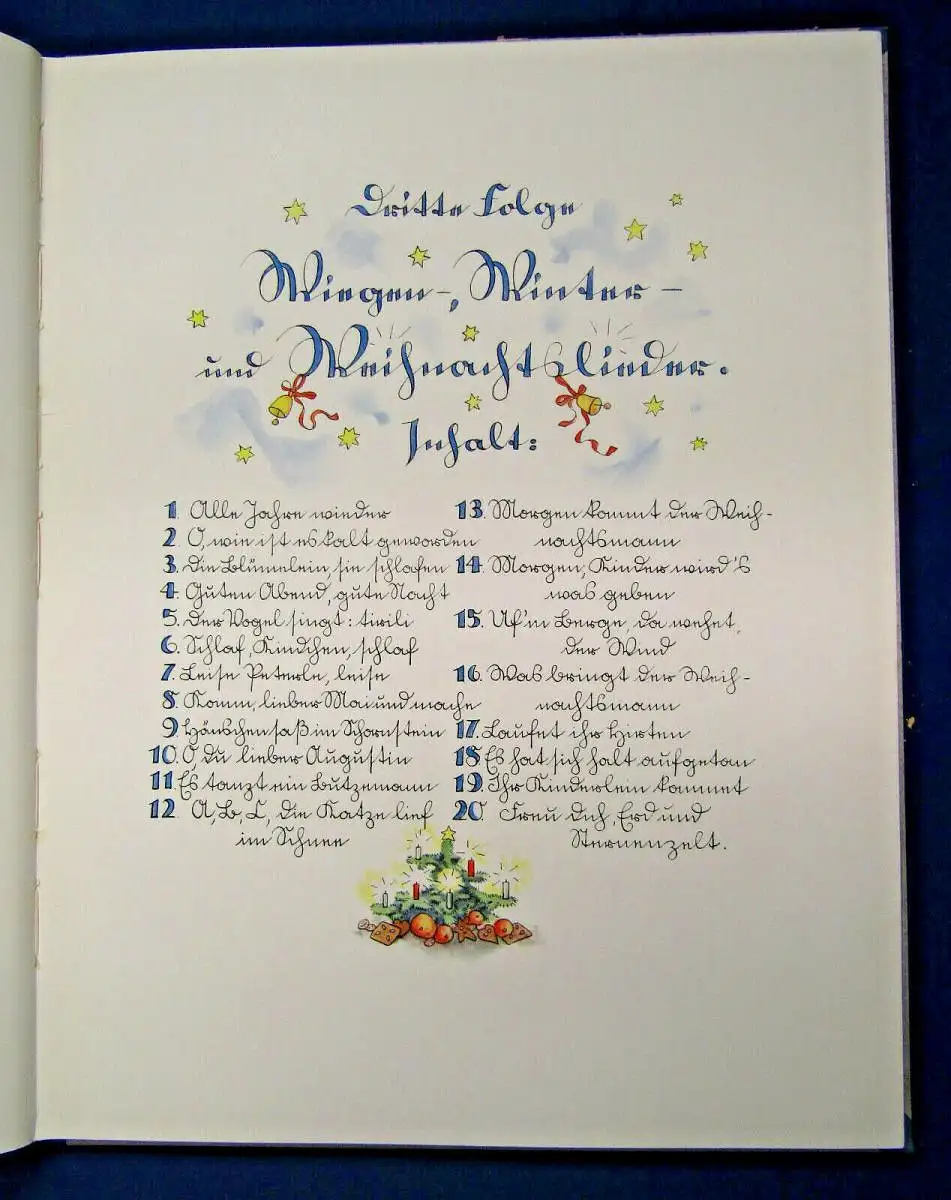 Dritte Folge
Wiegen-, Winter-
und Weihnachtslieder.
Inhalt:
1. Alle Jahre wieder
2. O, wie ist es kalt geworden
3. Die Blümelein, sie schlafen
4. Guten Abend, gute Nacht
5. Der Vogel singt: tirili
6. Schlaf, Kindchen, schlaf
7. Leise Peterle, leise
8. Komm, lieber Mai und mache
9. Hänschen saß im Schornstein
10. O, du lieber Augustin
11. Es tanzt ein Butzemann
12. A, B, C, die Katze lief
im Schnee
13. Morgen kommt der Weih-
nachtsmann
14. Morgen, Kinder wird's
was geben
15. Uf'm Berge, da wehet,
der Wind
16. Was bringt der Weih-
nachtsmann
17. Laufet ihr Hirten
18. Es hat sich halt aufgetan
19. Ihr Kinderlein kommet
20. Freu dich, Erd und
Sternenzelt.